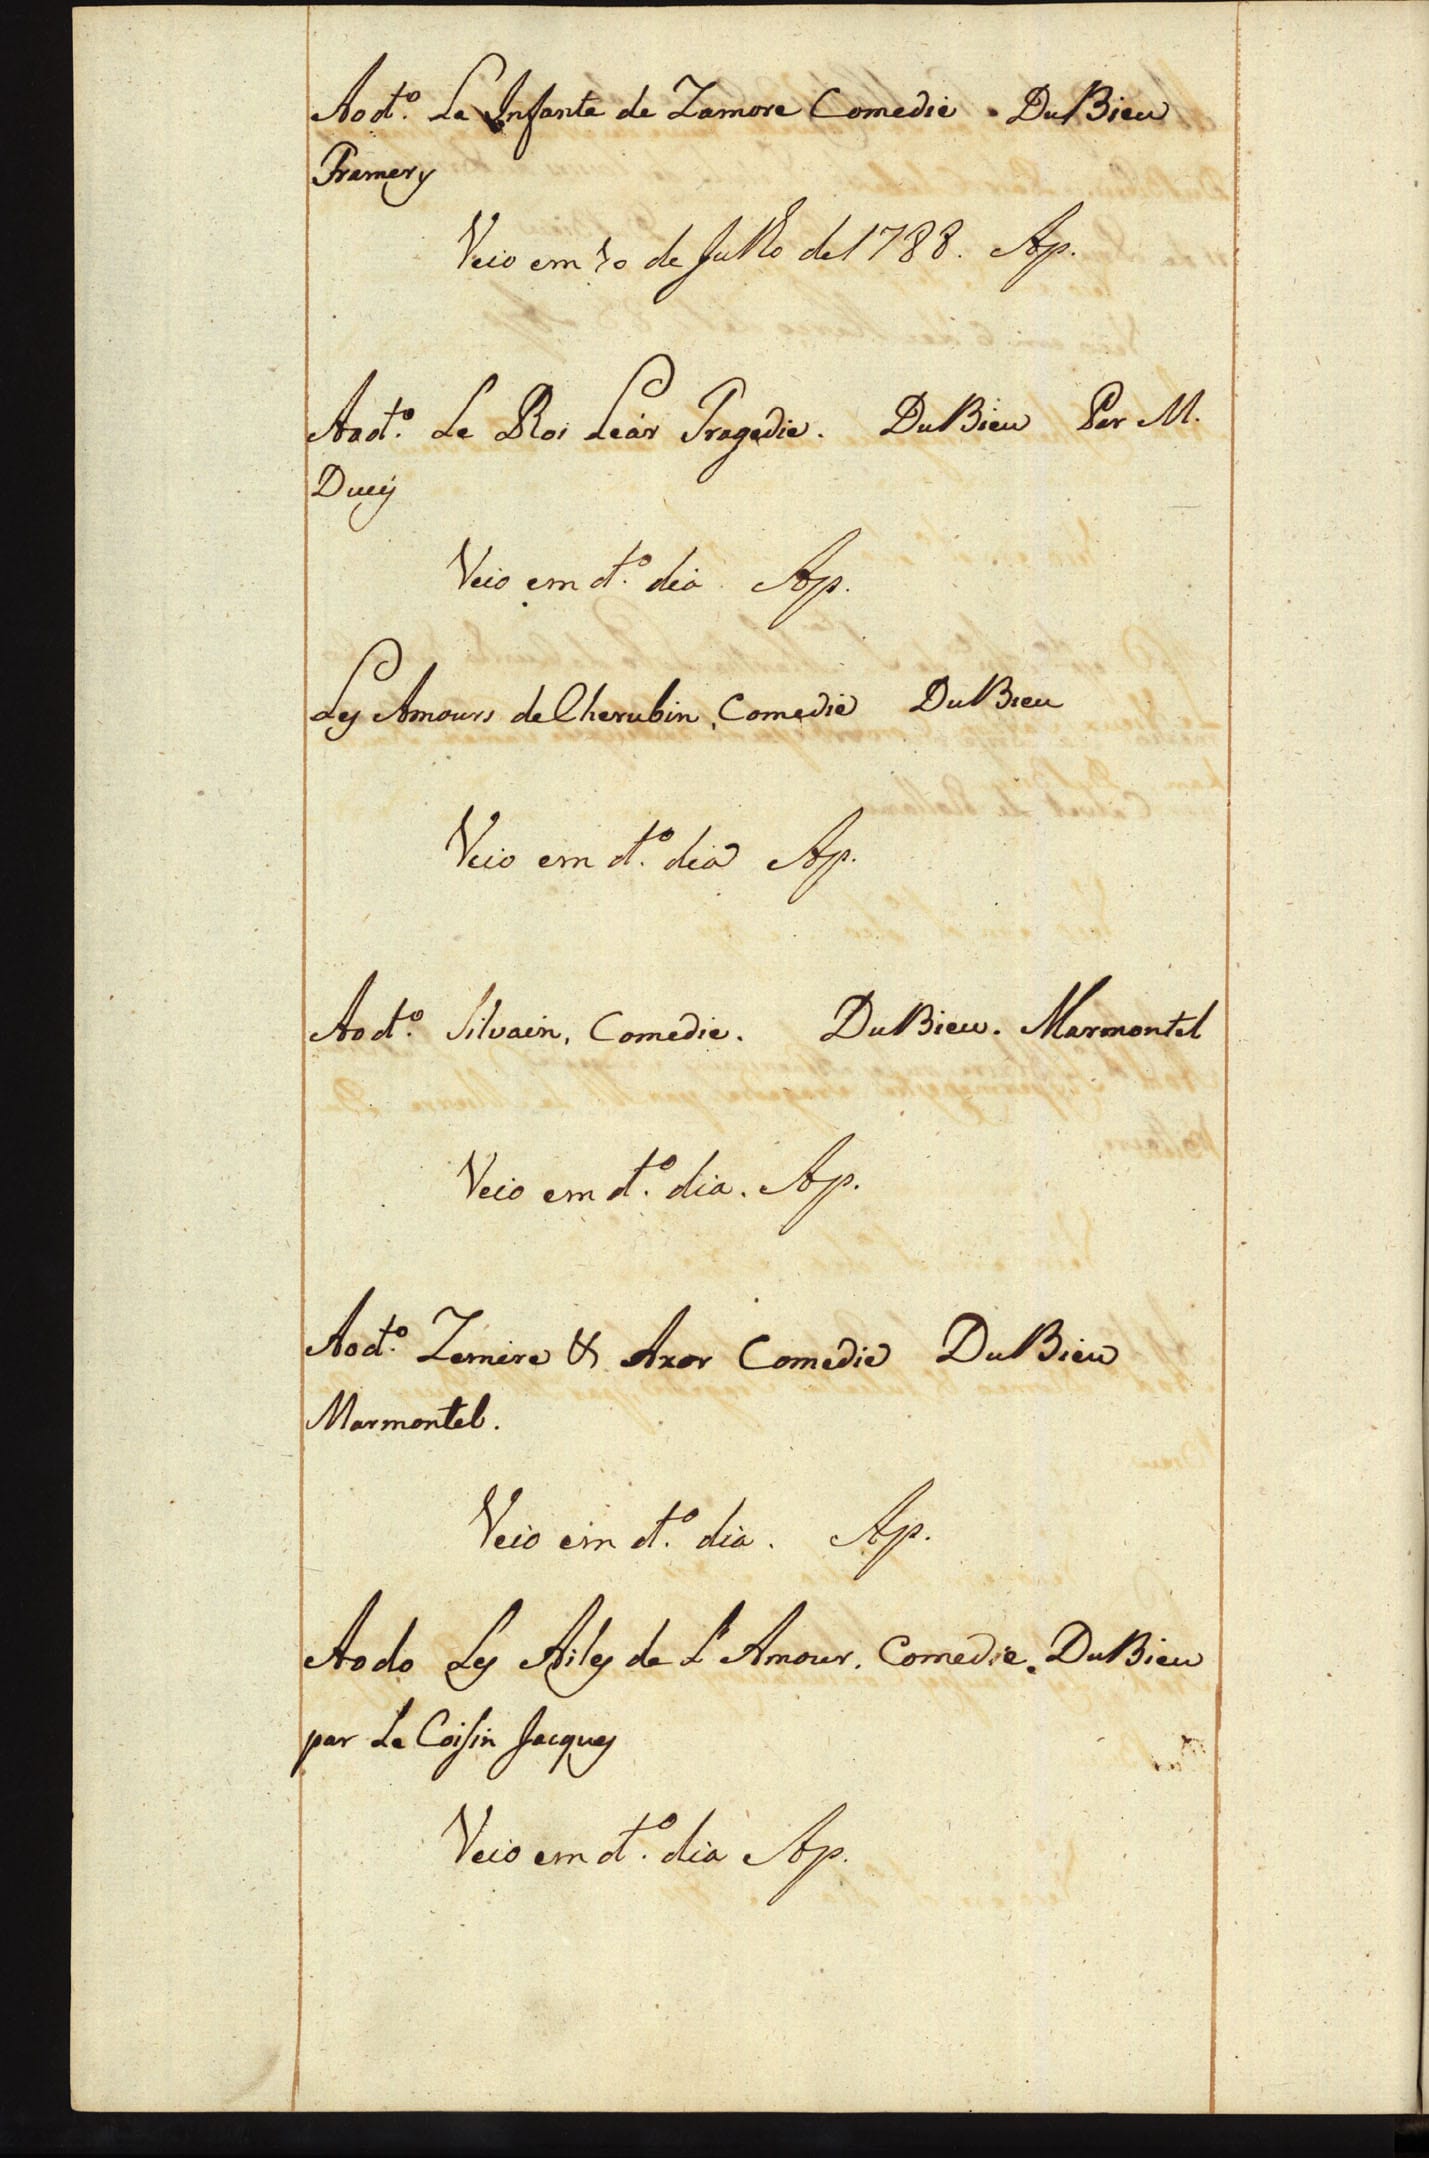 Ao dt.º La Infante de Zamore Comedie. Du Bieu
Framery
Veio em 10 de Julho de 1788. Ap.
Ao dt.º Le Roi Leàr Tragedie. Du Bieu Par M.
Ducis
Veio em dt.º dia. Ap.
Les Amours de Cherubin, Comedie Du Bieu
Veio em dt.º dia Ap.
Ao dt.º Silvain, Comedie. Du Bieu. Marmontel
Veio em dt.º dia. Ap.
Ao dt.º Zemire & Azor Comedie Du Bieu
Marmontel.
Veio em dt.º dia. Ap.
Ao do Les Ailes de L'Amour, Comedie. Du Bieu
par Le Coisin Jacques
Veio em dt.º dia Ap.